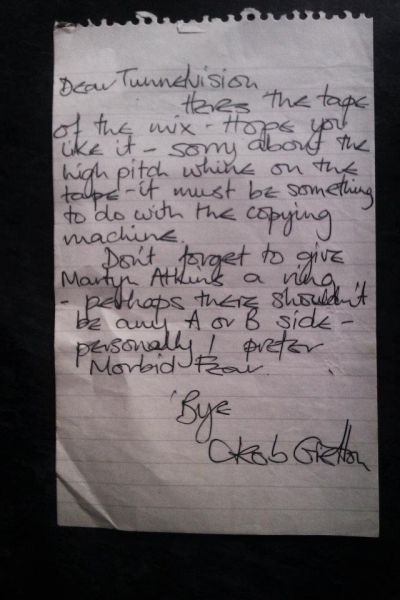 Dear Tunnelvision
Heres the tape
of the mix - Hope you
like it - sorry about the
high pitch whine on the
tape - it must be something
to do with the copying
machine.
Don't forget to give
Martyn Atkins a ring
- perhaps there shouldn't
be any A or B side -
personally I prefer
Morbid Fear.
'Bye
Rob Gretton